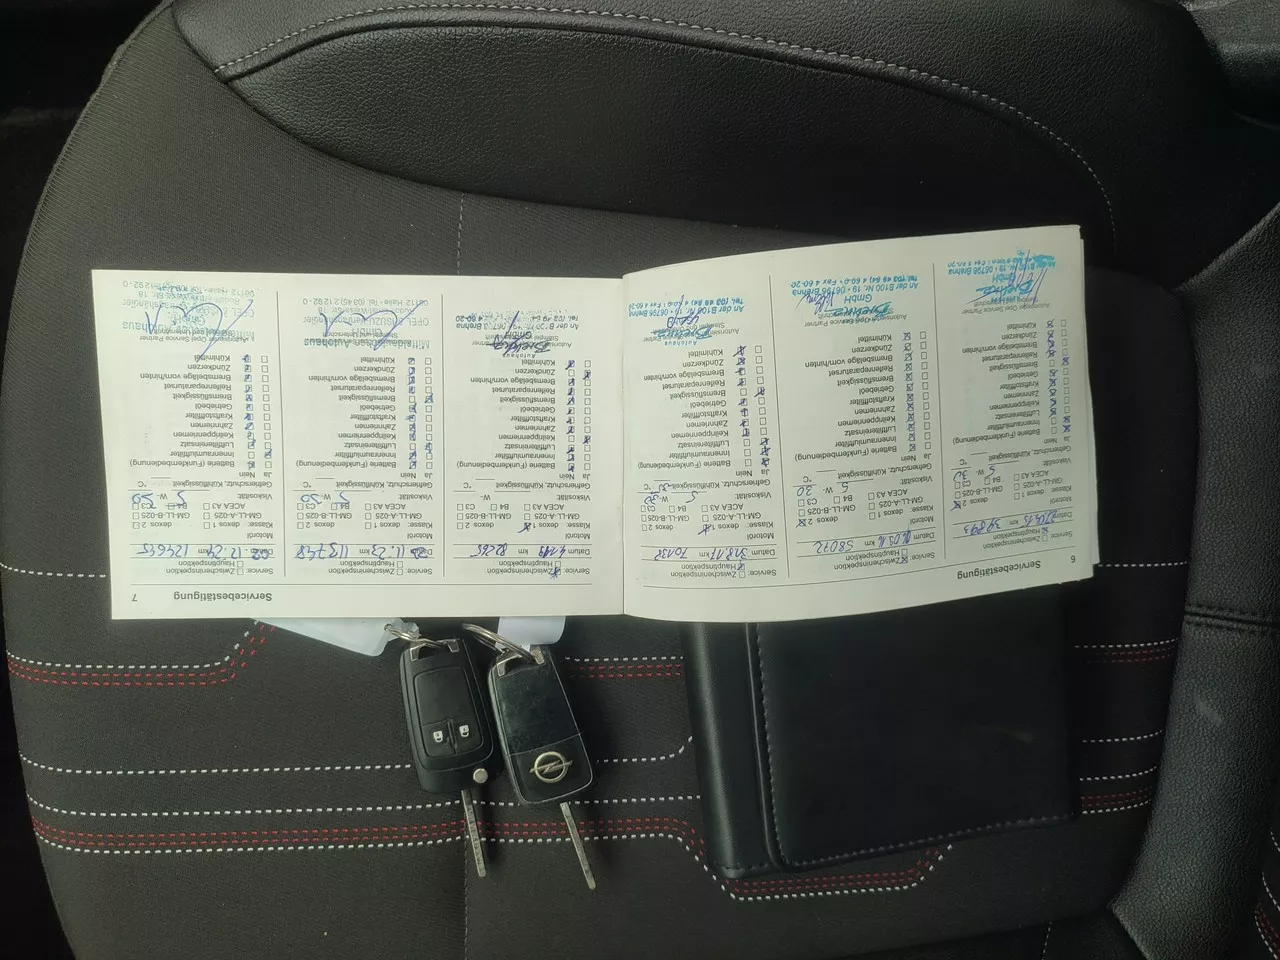 6 Servicebestätigung
Service: Zwischeninspektion
Hauptinspektion
km 39893
Motoröl
dexos 1 dexos 2
GM-LL-A-025 GM-LL-B-025
ACEA A3 B4 C3
Viskosität 5 W- 30
Gefrierschutz, Kühlflüssigkeit °C
Ja Nein
Batterie (Funkfernbedienung)
Innenraumluftfilter
Luftfiltereinsatz
Keilrippenriemen
Zahnriemen
Kraftstofffilter
Getriebeöl
Bremsflüssigkeit
Reifenreparaturset
Bremsbeläge vorn/hinten
Zündkerzen
Kühlmittel
GmbH
06796 Brehna
Service: Zwischeninspektion
Hauptinspektion
Datum km 58072
Motoröl
Klasse: dexos 1 dexos 2
GM-LL-A-025 GM-LL-B-025
ACEA A3 B4 C3
Viskosität 5 W- 30
Gefrierschutz, Kühlflüssigkeit °C
Ja Nein
Batterie (Funkfernbedienung)
Innenraumluftfilter
Luftfiltereinsatz
Keilrippenriemen
Zahnriemen
Kraftstofffilter
Getriebeöl
Bremsflüssigkeit
Reifenreparaturset
Bremsbeläge vorn/hinten
Zündkerzen
Kühlmittel
GmbH
An der B100 Nr. 19 · 06796 Brehna
Service: Zwischeninspektion
Hauptinspektion
Datum km 70132
Motoröl
Klasse: dexos 1 dexos 2
GM-LL-A-025 GM-LL-B-025
ACEA A3 B4 C3
Viskosität 5 W- 30
Gefrierschutz, Kühlflüssigkeit °C
Ja Nein
Batterie (Funkfernbedienung)
Innenraumluftfilter
Luftfiltereinsatz
Keilrippenriemen
Zahnriemen
Kraftstofffilter
Getriebeöl
Bremsflüssigkeit
Reifenreparaturset
Bremsbeläge vorn/hinten
Zündkerzen
Kühlmittel
Autohaus
An der B 100 Nr. 19 · 06796 Brehna
Servicebestätigung 7
Service: Zwischeninspektion
Hauptinspektion
Datum km 92265
Motoröl
Klasse: dexos 1 dexos 2
GM-LL-A-025 GM-LL-B-025
ACEA A3 B4 C3
Viskosität W-
Gefrierschutz, Kühlflüssigkeit °C
Ja Nein
Batterie (Funkfernbedienung)
Innenraumluftfilter
Luftfiltereinsatz
Keilrippenriemen
Zahnriemen
Kraftstofffilter
Getriebeöl
Bremsflüssigkeit
Reifenreparaturset
Bremsbeläge vorn/hinten
Zündkerzen
Kühlmittel
Autohaus
GmbH
Service: Zwischeninspektion
Hauptinspektion
Datum 11.23 km 113748
Motoröl
Klasse: dexos 1 dexos 2
GM-LL-A-025 GM-LL-B-025
ACEA A3 B4 C3
Viskosität 5 W- 20
Gefrierschutz, Kühlflüssigkeit °C
Ja Nein
Batterie (Funkfernbedienung)
Innenraumluftfilter
Luftfiltereinsatz
Keilrippenriemen
Zahnriemen
Kraftstofffilter
Getriebeöl
Bremsflüssigkeit
Reifenreparaturset
Bremsbeläge vorn/hinten
Zündkerzen
Kühlmittel
GmbH
Service: Zwischeninspektion
Hauptinspektion
Datum 12.24 km 126645
Motoröl
Klasse: dexos 1 dexos 2
GM-LL-A-025 GM-LL-B-025
ACEA A3 B4 C3
Viskosität 5 W- 20
Gefrierschutz, Kühlflüssigkeit °C
Ja Nein
Batterie (Funkfernbedienung)
Innenraumluftfilter
Luftfiltereinsatz
Keilrippenriemen
Zahnriemen
Kraftstofffilter
Getriebeöl
Bremsflüssigkeit
Reifenreparaturset
Bremsbeläge vorn/hinten
Zündkerzen
Kühlmittel